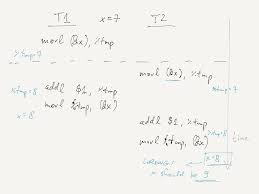 T1 x=7 T2
movl (&x), %tmp
%tmp=7
movl (&x), %tmp
%tmp=7
%tmp=8 addl $1, %tmp
movl %tmp, (&x)
x=8
addl $1, %tmp
%tmp=8
movl %tmp, (&x)
time
x=8
should be 9